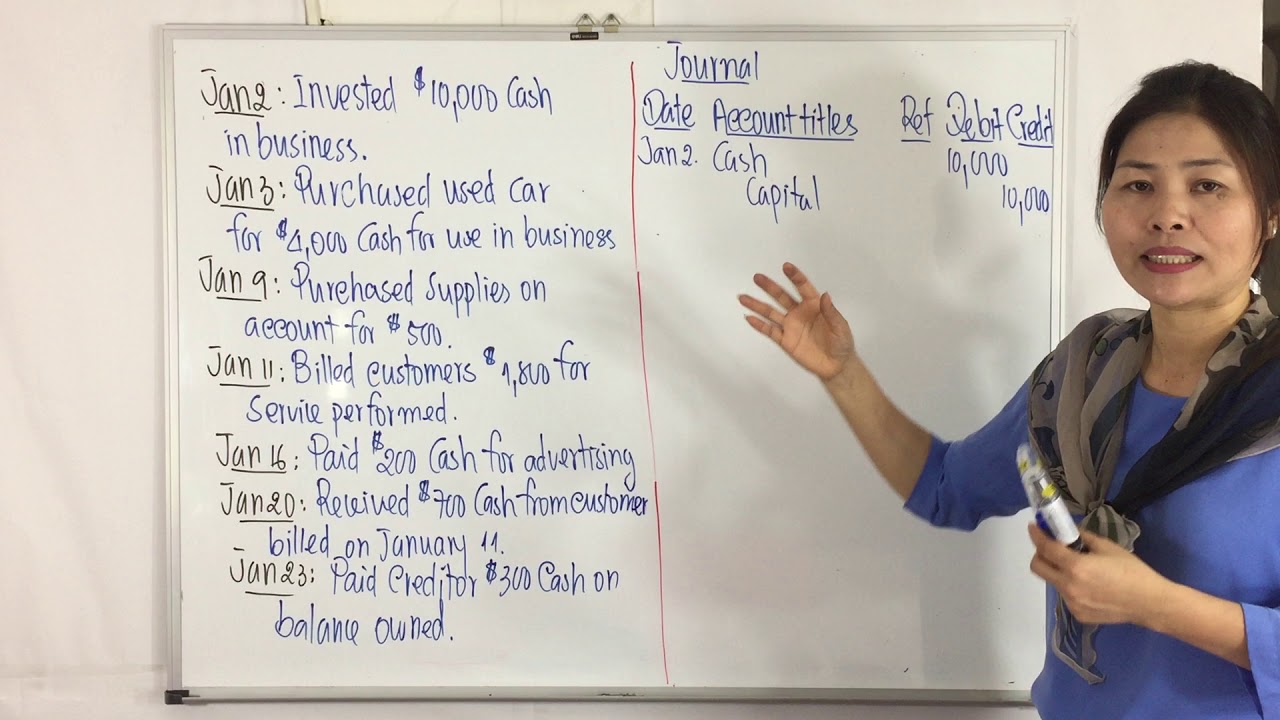 Jan 2: Invested $10,000 Cash
in business.
Jan 3: Purchased used car
for $4,000 Cash for use in business
Jan 9: Purchased Supplies on
account for $500.
Jan 11: Billed customers $1,800 for
Service performed.
Jan 16: Paid $200 Cash for advertising
Jan 20: Received $700 Cash from customer
billed on January 11.
Jan 23: Paid Creditor $300 Cash on
balance owned.
Journal
Date Account titles Ref Debit Credit
Jan 2. Cash 10,000
Capital 10,000